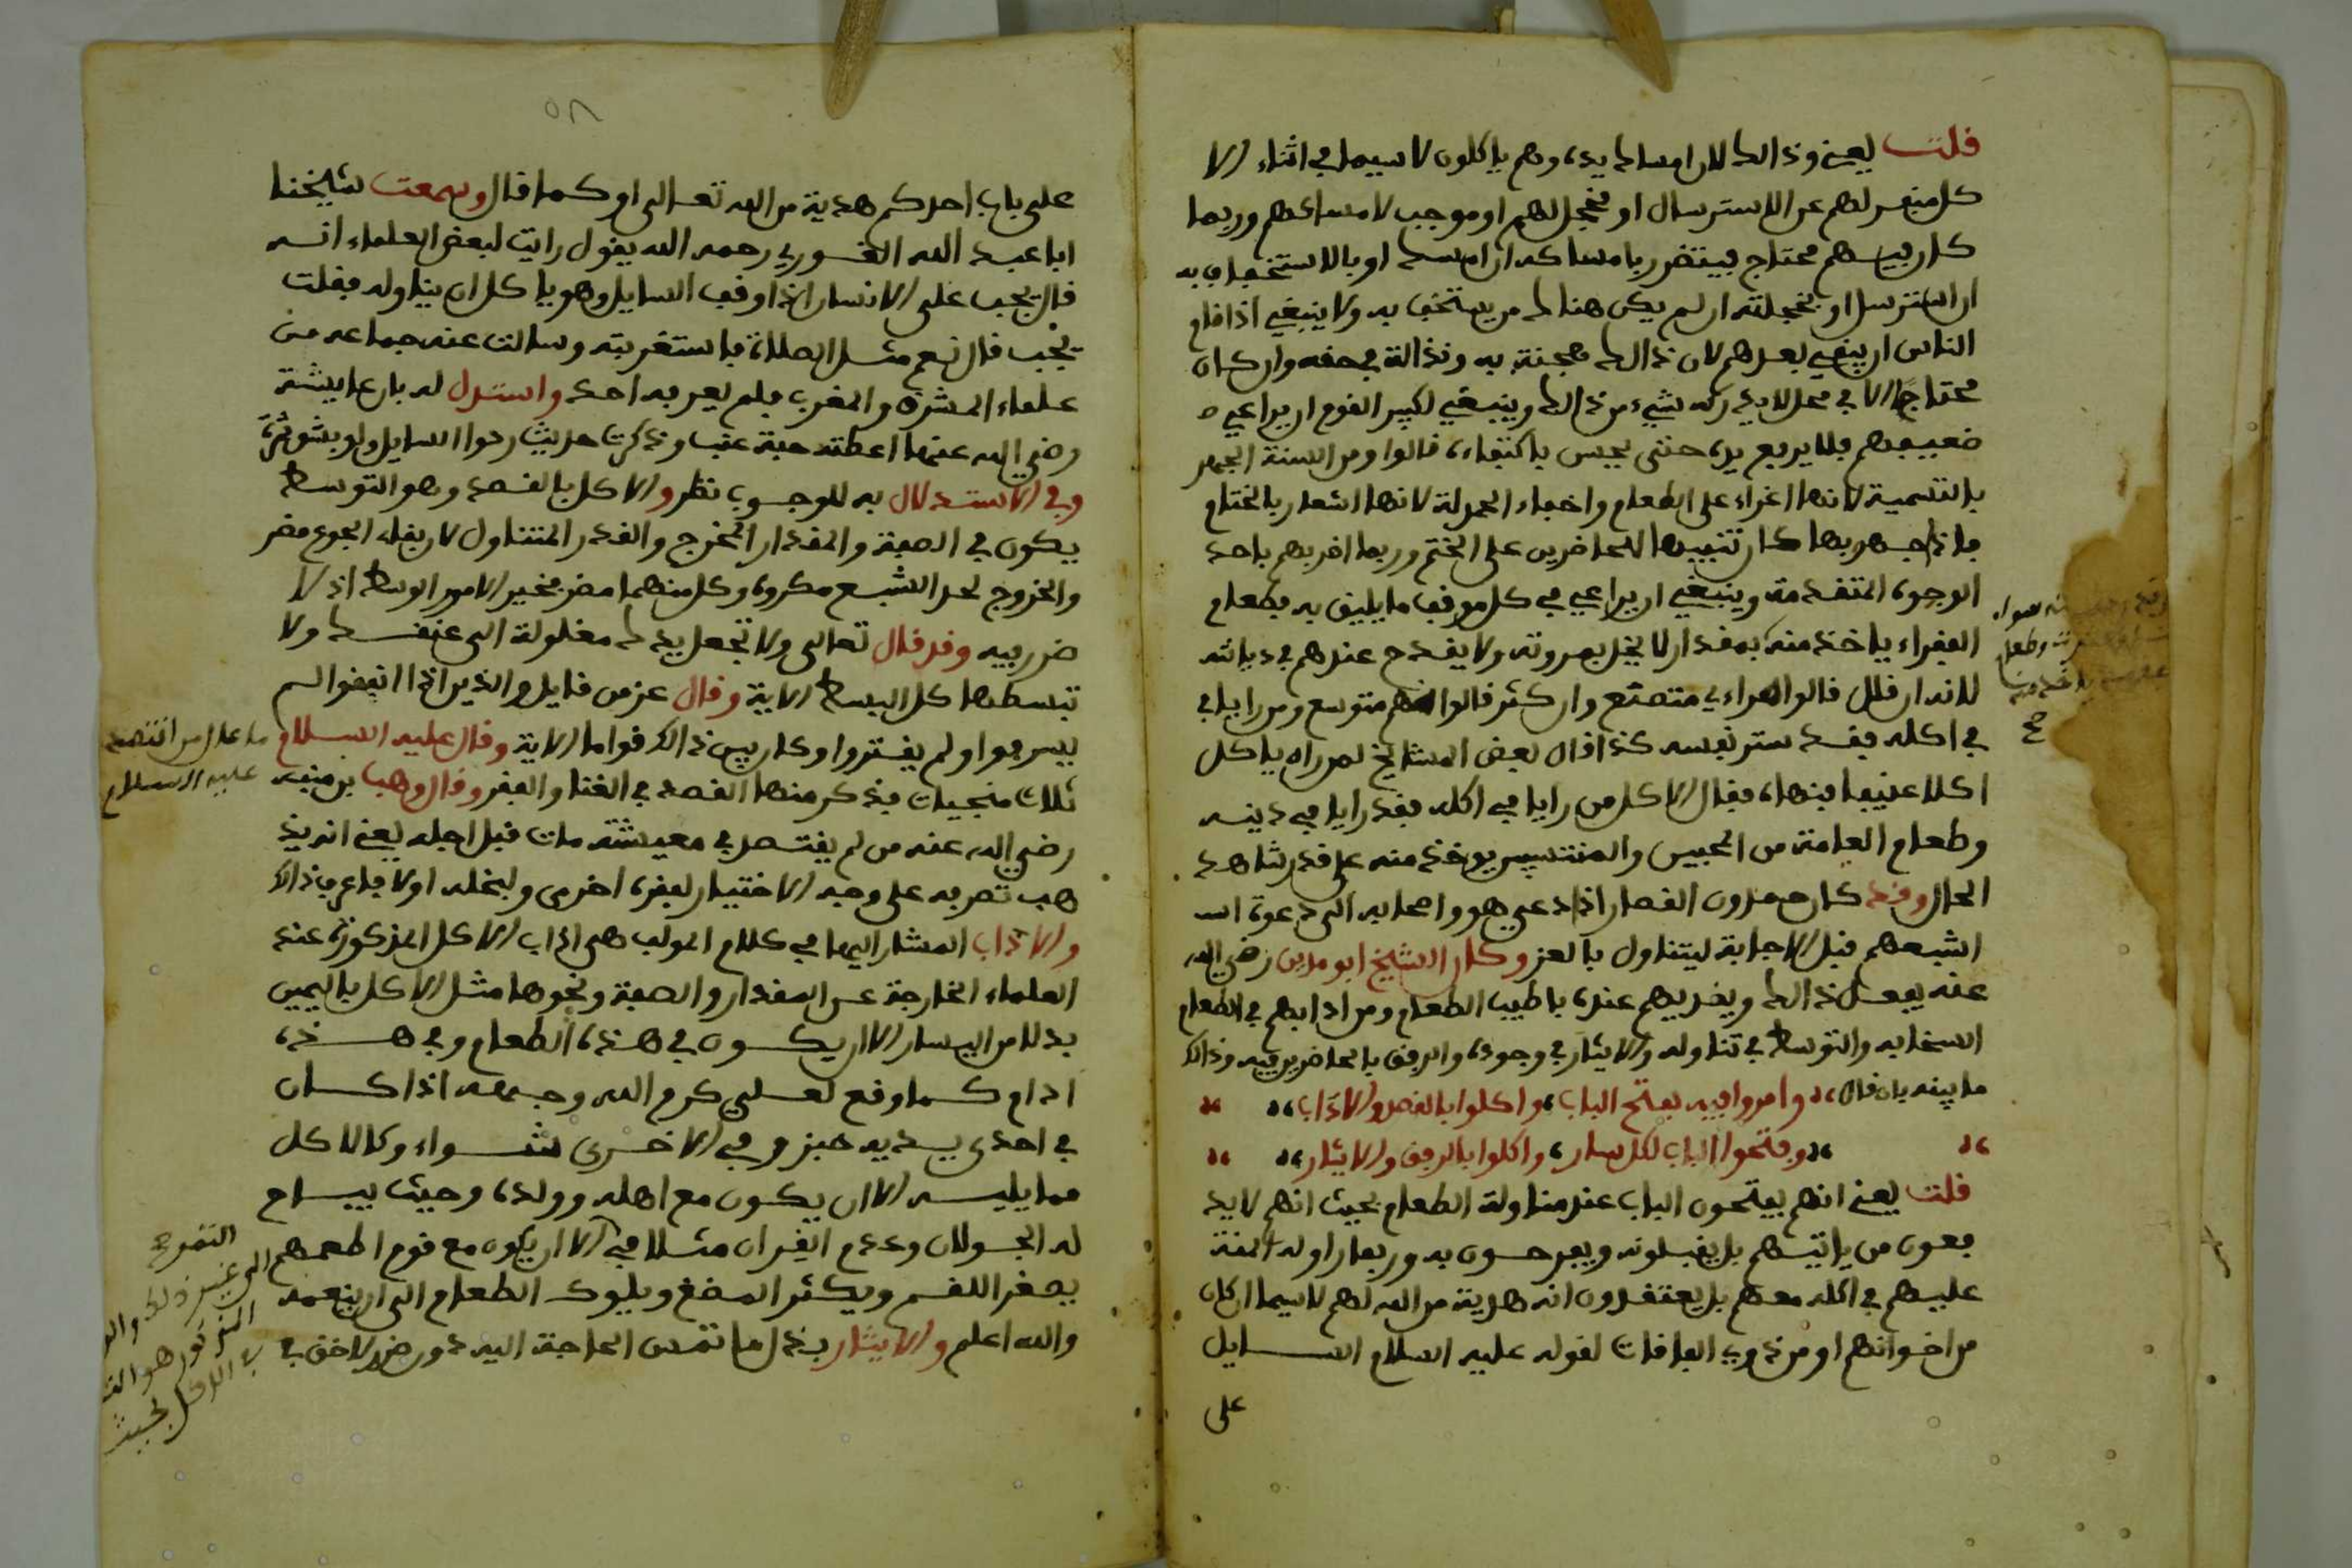 فلت يعنے وذالك لان امساك يده وهم ياكلون لا سيما في اثناء الا
كل منغص لهم عن الاسترسال او مخجل لهم او موجب لامساكهم وربما
كان بينهم محتاج فيتضرر بامساكه ان امسك او بالاستخفاف به
ان استرسل او بخجلته ان لم يكن هناك من يستخف به ولا ينبغي اذا قام
الناس ان يبقى بعدهم لان ذالك هجنة به ونذالة في حقه وان كان
محتاجًا الا في محل لا يدركه شيء من ذالك وينبغي لكبير القوم ان يراعي
ضعيفهم فلا يرفع يده حتى يحس باكتفاء، قالوا ومن السنة الجهر
بالتسمية لانها اغراء على الطعام واخفاء الحمدلة لانها اشعار بالختام
فاذا جهر بها كان تنبيها للحاضرين على الختم وربما اضر بهم باحد
الوجوه المتقدمة وينبغي ان يراعي في كل موقف ما يليق به فطعام
الفقراء ياخذ منه بمقدار لا يخل بمروته ولا يقدح عندهم في ديانته
لانه ان قلل قالوا مراءى متصنع وان كثر قالوا نهم متوسع ومن رايا في
في اكله فقد ستر نفسه كذا قال بعض المشايخ لمن راه ياكل
اكلا عنيفا فنهاه فقال الاكل من رايا في اكله فقد رايا في دينه
وطعام العامة من المحبين والمنتسبين يوخذ منه على قدر شاهد
الحال وقد كان حمدون القصار اذا دعي هو واصحابه الى دعوة
اشبعهم قبل الاجابة ليتناول بالعز وكان الشيخ ابو مدين رضي الله
عنه يفعل ذالك ويضربهم عنده باطيب الطعام ومن ادابهم في الطعام
السخا به والتوسط في تناوله والايثار في وجوده والرفق بالحاضرين فيه وذالك
ما بينه بان قال ،، وامروا فيه بفتح الباب، واكلوا بالقصد والاداب ،،
،، وفتحوا الباب لكل سار، واكلوا بالرفق والايثار ،،
فلت يعنے انهم يفتحون الباب عند مناولة الطعام بحيث انهم لا يد
فعون من ياتيهم بل يقبلونه ويفرحون به وربما راوا له المنة
عليهم في اكله معهم بل يعتقدون انه هدية من الله لهم لا سيما ان كان
من اخوانهم او من ذوي الفاقات لقوله عليه السلام السايل
على
٥٨
على باب احدكم هدية من الله تعالى او كما قال وسمعت شيخنا
ابا عبد الله القوري رحمه الله يقول رايت لبعض العلماء انه
قال يجب على الانسان اذا وقف السايل وهو ياكل ان يناوله فقلت
يجب قال نعم مثل الصلاة فاستغربته وسالت عنه جماعه من
علماء المشرق والمغرب فلم يعرفه احد واستدل له بان عايشة
رضي الله عنها اعطته حبة عنب وذكرت حديث ردوا السايل ولو بشق تمرة
وفي الاستدلال به للوجوب نظر والاكل بالقصد وهو التوسط
يكون في الصفة والمقدار المخرج والقدر المتناول لان بقاء الجوع مضر
والخروج لحد الشبع مكروه وكل منهما مضر فخير الامور الوسط اذ لا
ضرر فيه وقد قال تعالى ولا تجعل يدك مغلولة الى عنقك ولا
تبسطها كل البسط الاية وقال عز من قايل والذين اذا انفقوا لم
يسرفوا ولم يقتروا وكان بين ذالك قواما الاية وقال عليه السلام
ثلاث منجيات فذكر منها القصد في الغنا والفقر وقال وهب بن منبه
رضي الله عنه من لم يقتصد في معيشته مات قبل اجله يعنے انه يذ
هب تصرفه على وجه الاختيار لفقره اخرى ولبخله اولا فاعرف ذالك
والاداب المشار اليها في كلام المولف هي اداب الاكل المذكورة عند
العلماء الخارجة عن المقدار والصفة ونحوها مثل الاكل باليمين
بدلا من اليسار الا ان يكون في هذه الطعام وفي هذه
ادام كما وقع لعلي كرم الله وجهه اذا كان
في احدى يديه خبز وفي الاخرى شواء وكالاكل
مما يليه الا ان يكون مع اهله وولده وحيث يباح
له الجولان وعدم القران مثلا في الا ان يكون مع قوم اطعمهم
يصغر اللقم ويكثر المضغ ويلوك الطعام الى ان ينعمه
والله اعلم والايثار بذل ما تمس الحاجة اليه دون ضرر لاحق في
ما عال من اقتصد
عليه السلام
التمر
الى غير ذلك